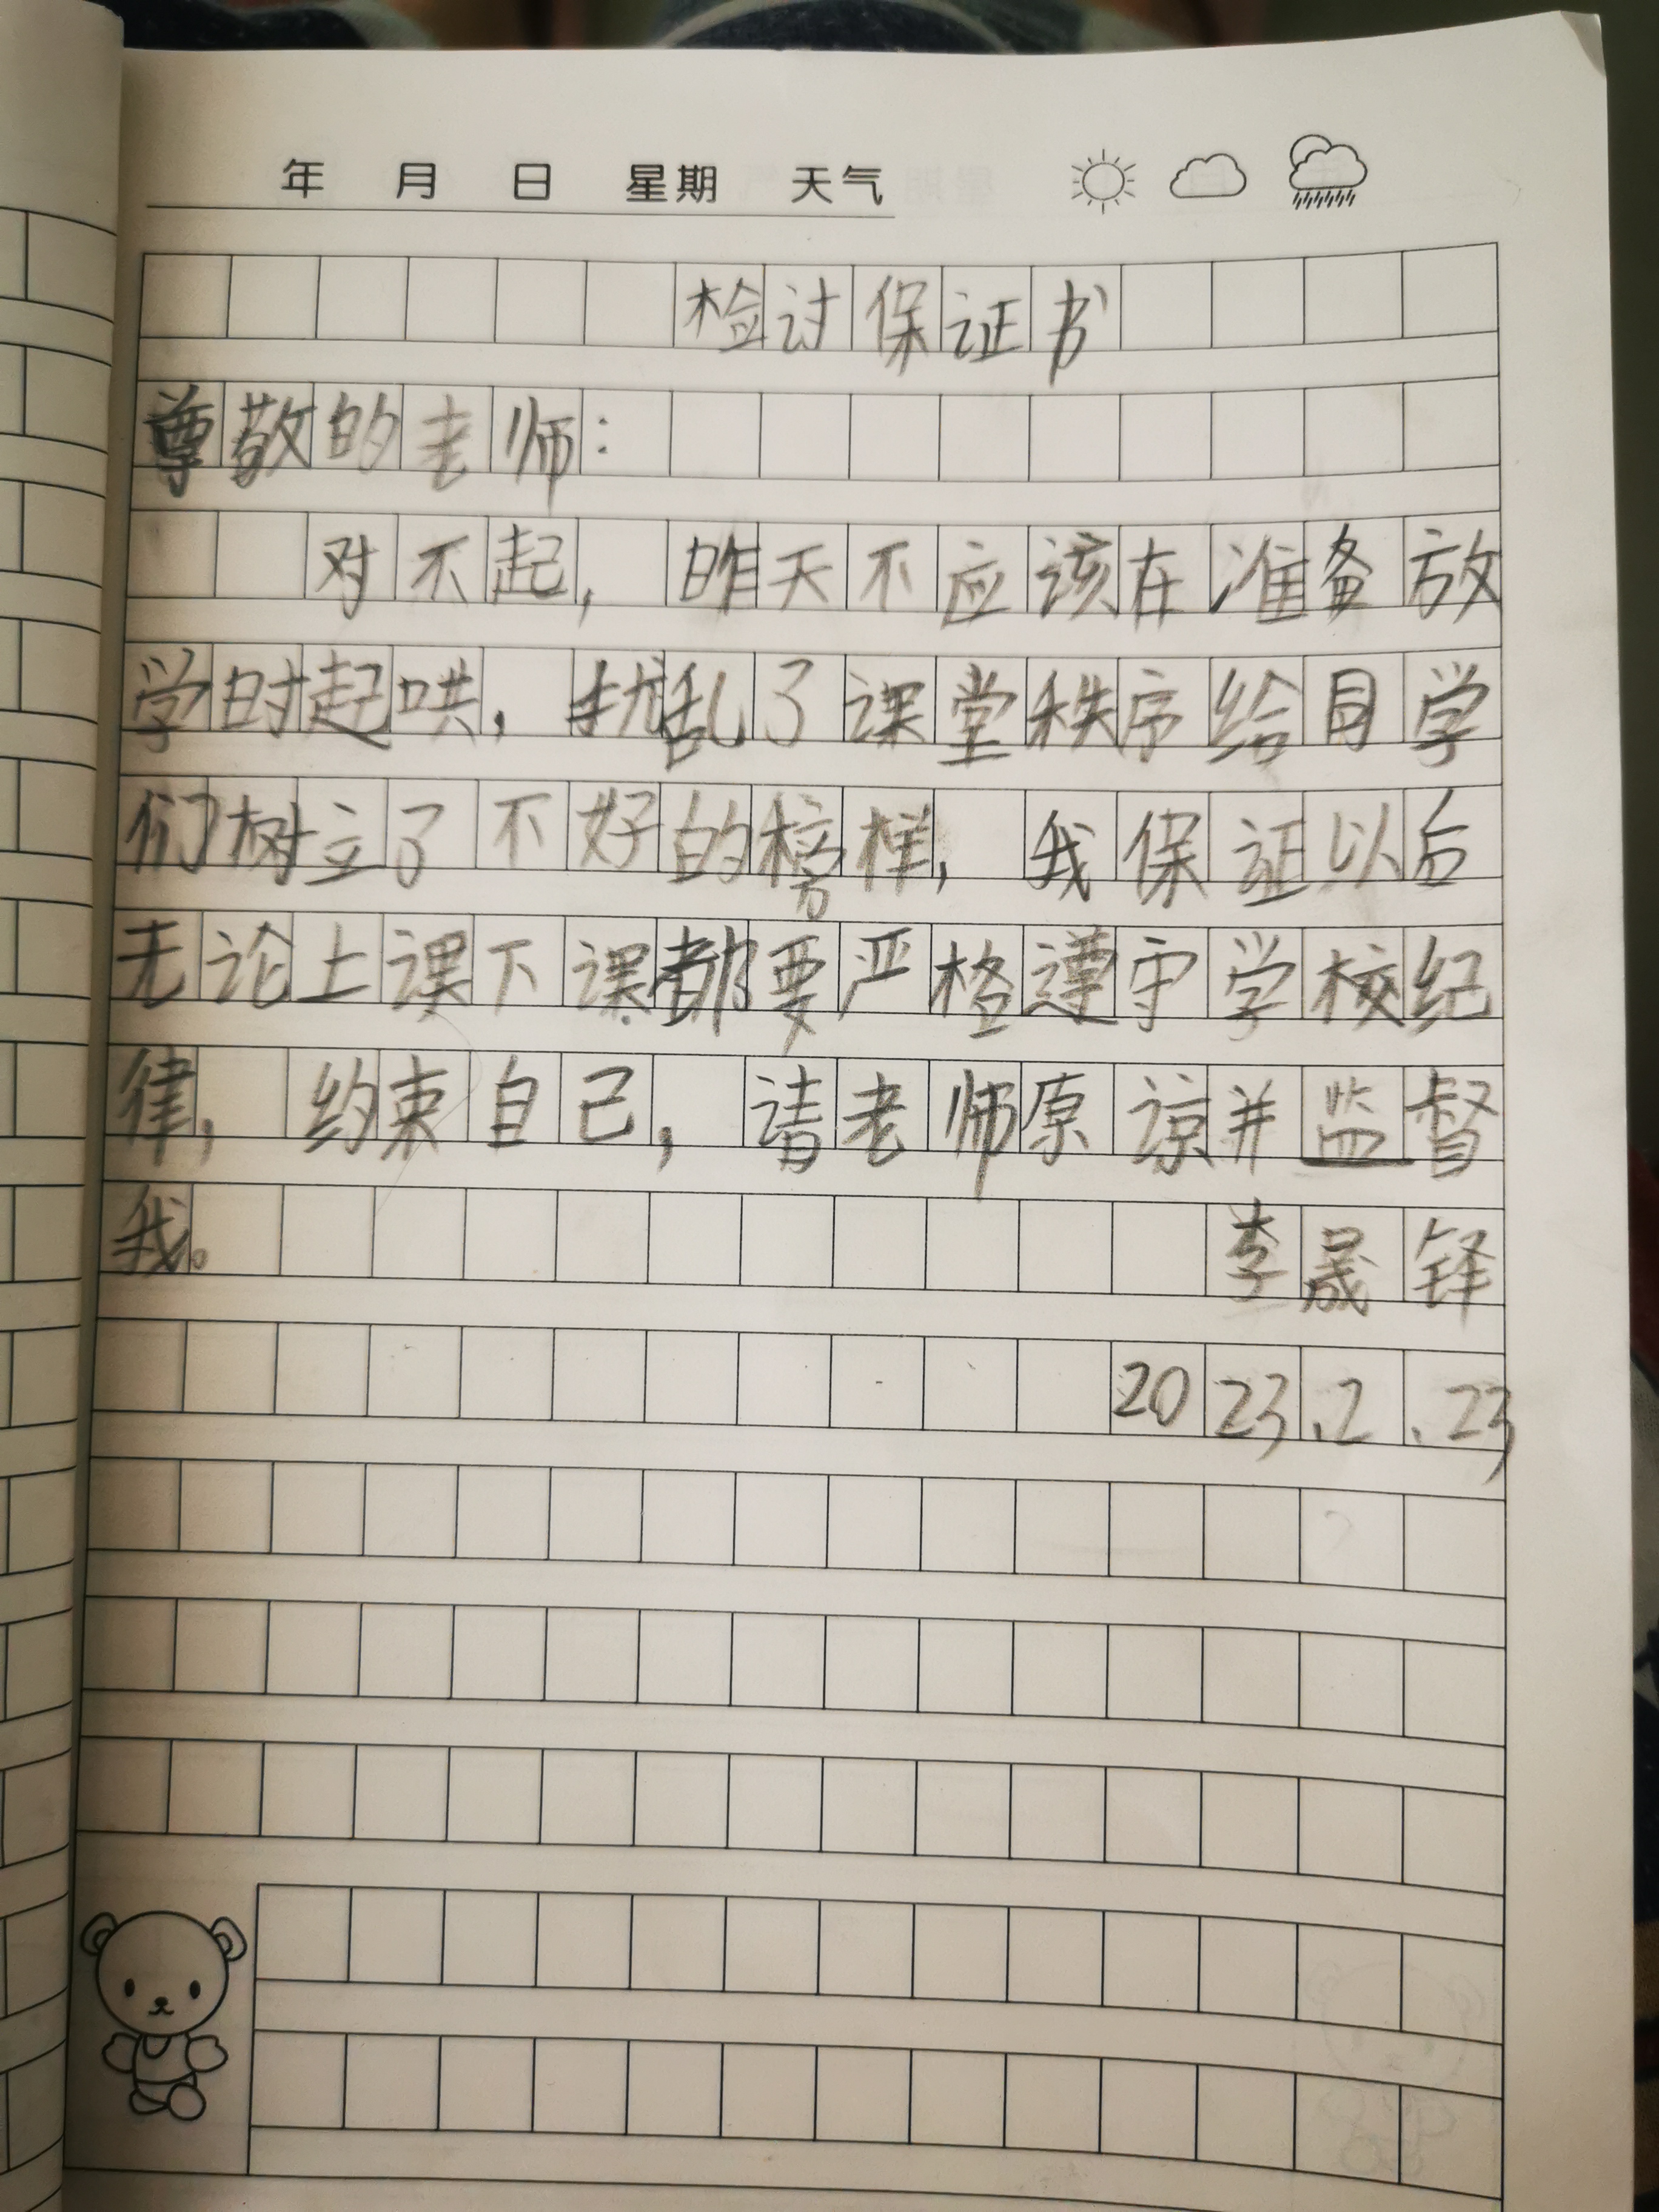 年 月 日 星期 天气
检讨保证书
尊敬的老师：
对不起，昨天不应该在准备放
学时起哄，扰乱了课堂秩序给同学
们树立了不好的榜样，我保证以后
无论上课下课都要严格遵守学校纪
律，约束自己，请老师原谅并监督
我。 李晟铎
2023.2.23